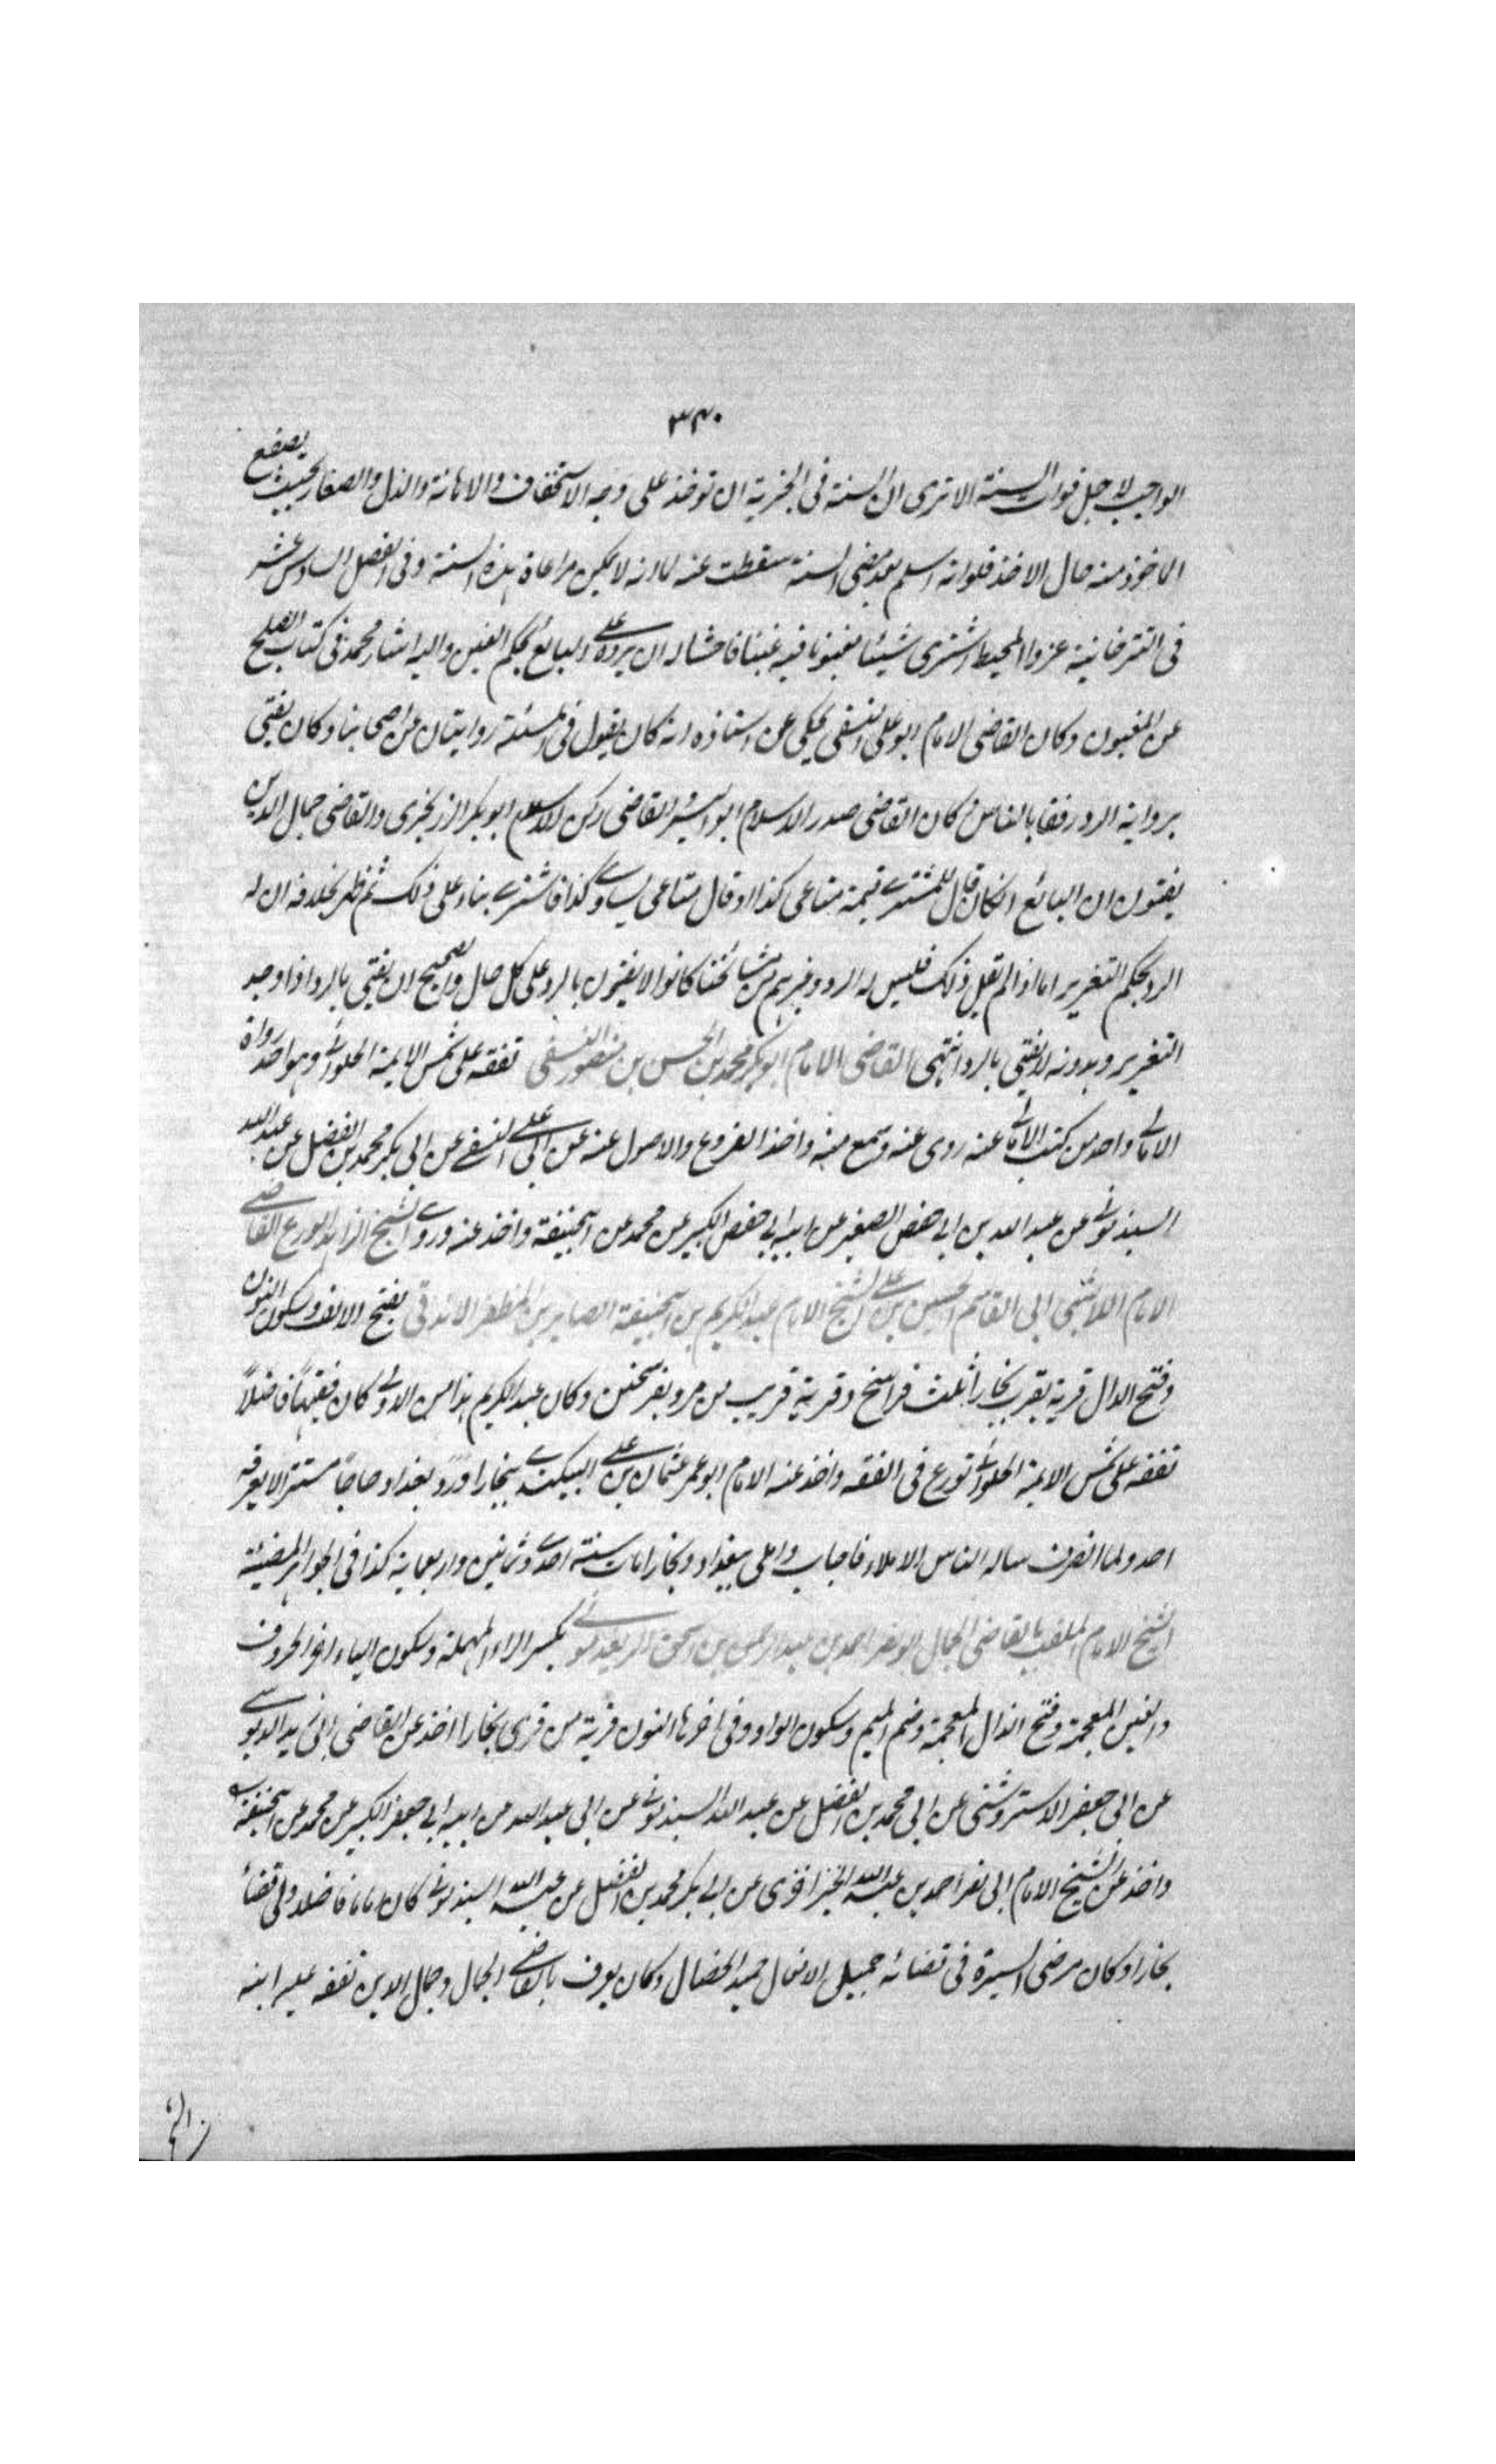 ٣٤٠
الواجب لاجل فوات السنة الا ترى ان السنة فى الجزية ان توخذ على وجه الاستخفاف والاهانة والذل والصغار بحيث يصفع
الماخوذ منه حال الاخذ فلو انه اسلم بعد مضى السنة سقطت عنه لانه لا يمكن مراعاة هذه السنة وفى الفصل السادس عشر
فى التترخانية عزوا المحيط اشترى شيئا مغبونا فيه غبنا فاحشا له ان يرده على البائع بحكم الغبن واليه اشار محمد فى كتاب الصلح
عن المغبون وكان القاضى الامام ابو على النسفى يحكى عن استاذه انه كان يقول فى المسئلة روايتان عن اصحابنا وكان يفتى
برواية الرد رفقا بالناس وكان القاضى صدر الاسلام ابو اليسر والقاضى ركن الاسلام ابو بكر الزرنجرى والقاضى جمال الدين
يفتون ان البائع انكان قال للمشترى قيمة متاعى كذا او قال متاعى يساوى كذا فاشترى بناء على ذلك ثم ظهر بخلافه ان له
الرد بحكم التغرير اما اذا لم يقل ذلك فليس له الرد وغيرهم من مشائخنا كانوا لا يفتون بالرد على كل حال والصحيح ان يفتى بالرد اذا وجد
التغرير وبدونه لا يفتى بالرد انتهى القاضى الامام ابو بكر محمد بن الحسن بن منصور النسفى تفقه على شمس الايمة الحلوانى وهو احد رواة
الامالى واحد من كتب الامالى عنه روى عنه وسمع منه واخذ الفروع والاصول عنه عن ابى على النسفى عن ابى بكر محمد بن الفضل عن عبد الله
السبذمونى عن عبد الله بن ابى حفص الصغير عن ابيه ابى حفص الكبير عن محمد عن ابيحنيفة واخذ عنه وروى الشيخ الزاهد الورع القاضى
الامام اللامشى ابى القاسم الحسين بن على الشيخ الامام عبد الكريم بن ابيحنيفة الصابر بن المظفر الاندقى بفتح الالف وسكون النون
وفتح الدال قرية بقرب بخارا ثلث فراسخ وقرية قريب من مرو بفرسخين وكان عبد الكريم هذا من الاولى كان فقيها فاضلاً
تفقه على شمس الايمة الحلوانى تورع فى الفقه واخذ عنه الامام ابو عمر عثمان بن على البيكندى ببخارا ورد بغداد حاجا مستترا لا يعرفه
احد ولما انصرف ساله الناس الاملاء فاجاب واملى ببغداد وبخارا مات سنة احدى وثمانين واربعماية كذا فى الجواهر المضيئة
الشيخ الامام الملقب بالقاضى الجمال ابو نصر احمد بن عبد الرحمن بن اسحق الريغدمونى بكسر الراء المهملة وسكون الياء اخر الحروف
والغين المعجمة وفتح الذال المعجمة وضم الميم وسكون الواو وفى اخرها النون قرية من قرى بخارا اخذ عن القاضى ابى زيد الدبوسى
عن ابى جعفر الاستروشنى عن ابى محمد بن الفضل عن عبد الله السبذمونى عن ابى عبد الله من ابيه ابى جعفر الكبير عن محمد عن ابيحنيفة
واخذ عن الشيخ الامام ابى نصر احمد بن عبد الله الخيزاخزى عن ابى بكر محمد بن الفضل عن عبد الله السبذمونى كان اماما فاضلا ولى قضاء
بخارا وكان مرضى السيرة فى قضائه جميل الافعال حميد الخصال وكان يعرف بالقاضى الجمال وجمال الدين تفقه عليه ابنه